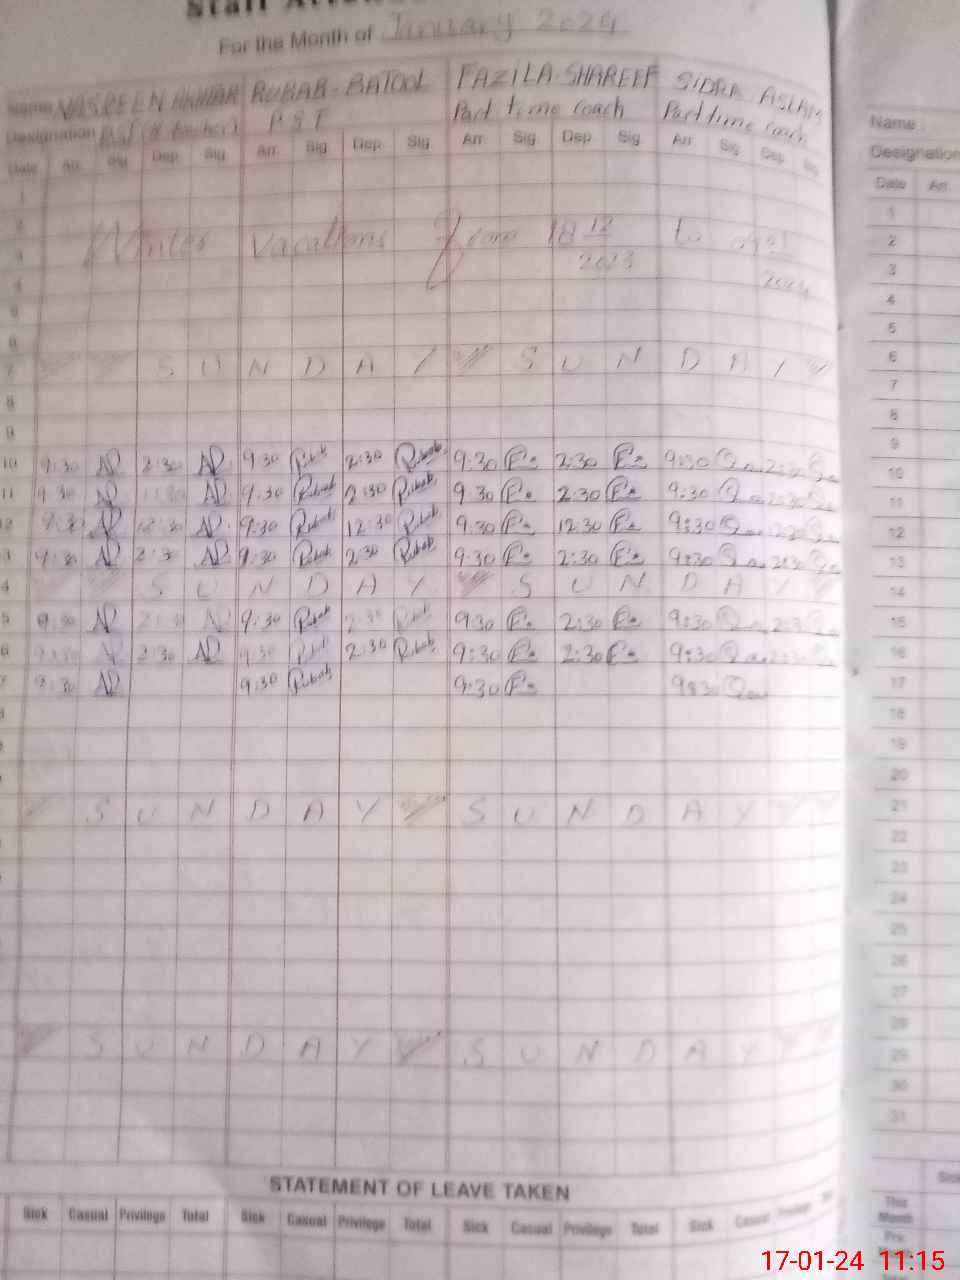 Staff Atten
For the Month of January 2024
Name NASREEN AKHTAR RUBAB-BATOOL FAZILA-SHAREEF SIDRA ASLAM
Designation PST (H teacher) PST Part time coach Part time coach
Date Arr Sig Dep Sig Arr Sig Dep Sig Arr Sig Dep Sig Arr Sig Dep Sig
1
2
3 Winter vacations from 18 12 2023 to 2024
4
5
6
7 SUNDAY SUNDAY
8
9
10 9:30 2:30 9:30 Rubab 2:30 Rubab 9:30 2:30 9:30 2:30
11 9:30 9:30 Rubab 2:30 Rubab 9:30 2:30 9:30 2:30
12 9:30 12:30 9:30 Rubab 12:30 Rubab 9:30 12:30 9:30
13 9:30 2:30 9:30 Rubab 2:30 Rubab 9:30 2:30 9:30 2:30
4 SUNDAY SUNDAY
5 9:30 2:30 9:30 Rubab 2:30 Rubab 9:30 2:30 9:30 2:30
6 9:30 2:30 9:30 Rubab 2:30 Rubab 9:30 2:30 9:30 2:30
7 9:30 9:30 Rubab 9:30 9:30
SUNDAY SUNDAY
SUNDAY SUNDAY
STATEMENT OF LEAVE TAKEN
Sick Casual Privilege Total Sick Casual Privilege Total Sick Casual Privilege Total Sick Casual Privilege
Name
Designation
Date Arr
1
2
3
4
5
6
7
8
9
10
11
12
13
14
15
16
17
18
19
20
21
22
23
24
25
26
27
28
29
30
31
Sick
This
Month
Pre.
17-01-24 11:15